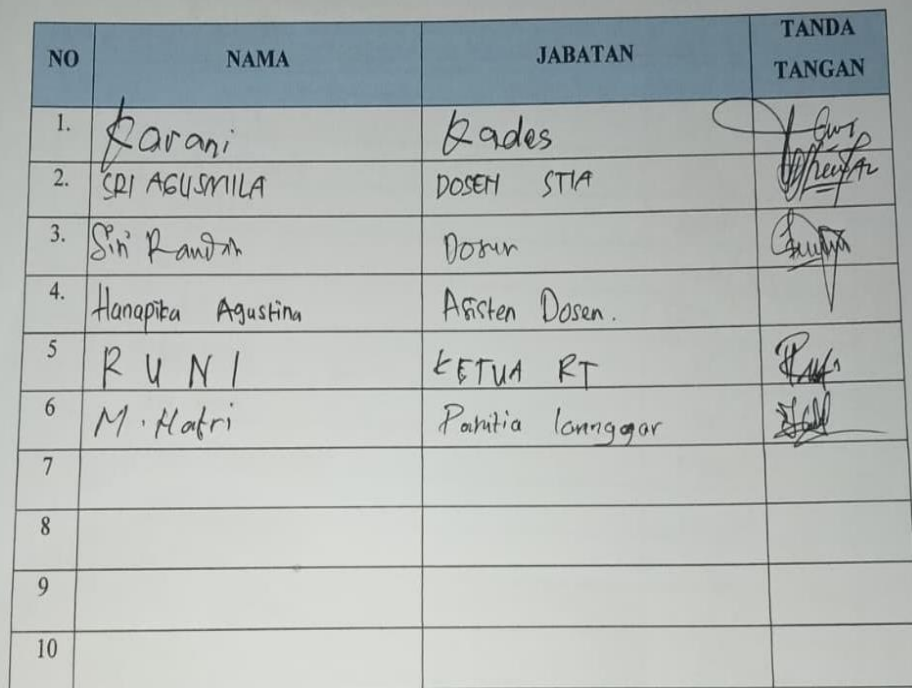 NO NAMA JABATAN TANDA TANGAN
1. Karani Kades
2. SRI AGUSMILA DOSEN STIA
3. Siri Dosen
4. Hanapika Agustina Asisten Dosen.
5 RUNI KETUA RT
6 M. Hatri Panitia langgar
7
8
9
10